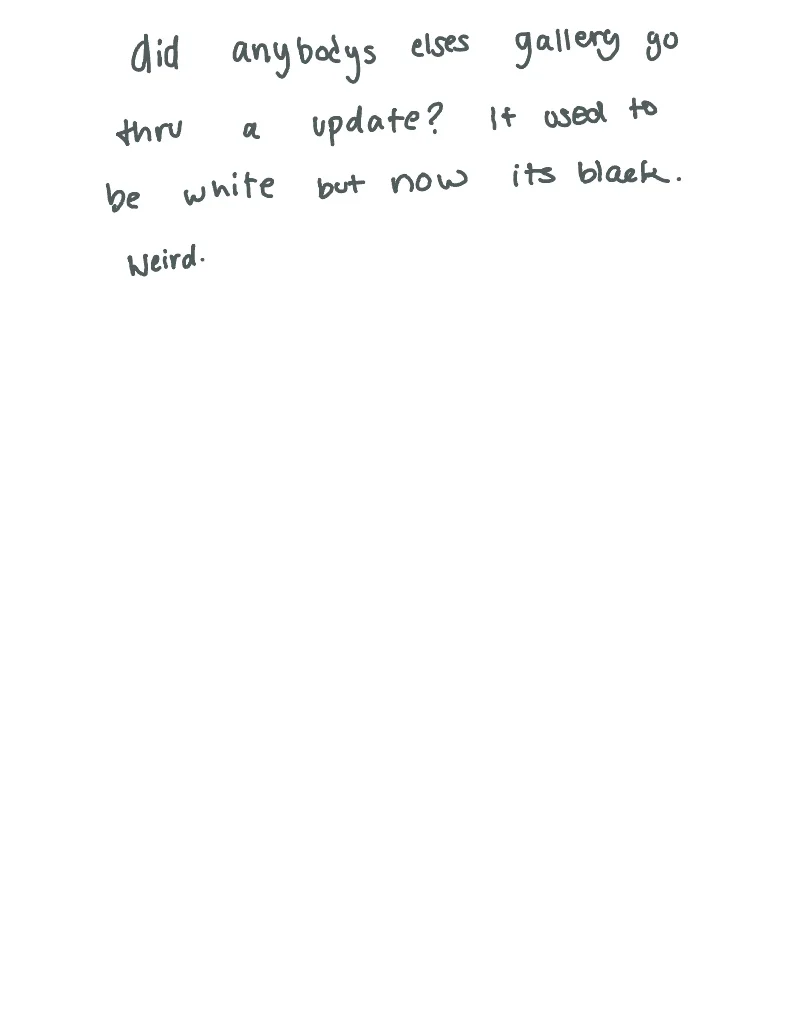 did anybodys elses gallery go
thru a update? It used to
be white but now its black.
Weird.